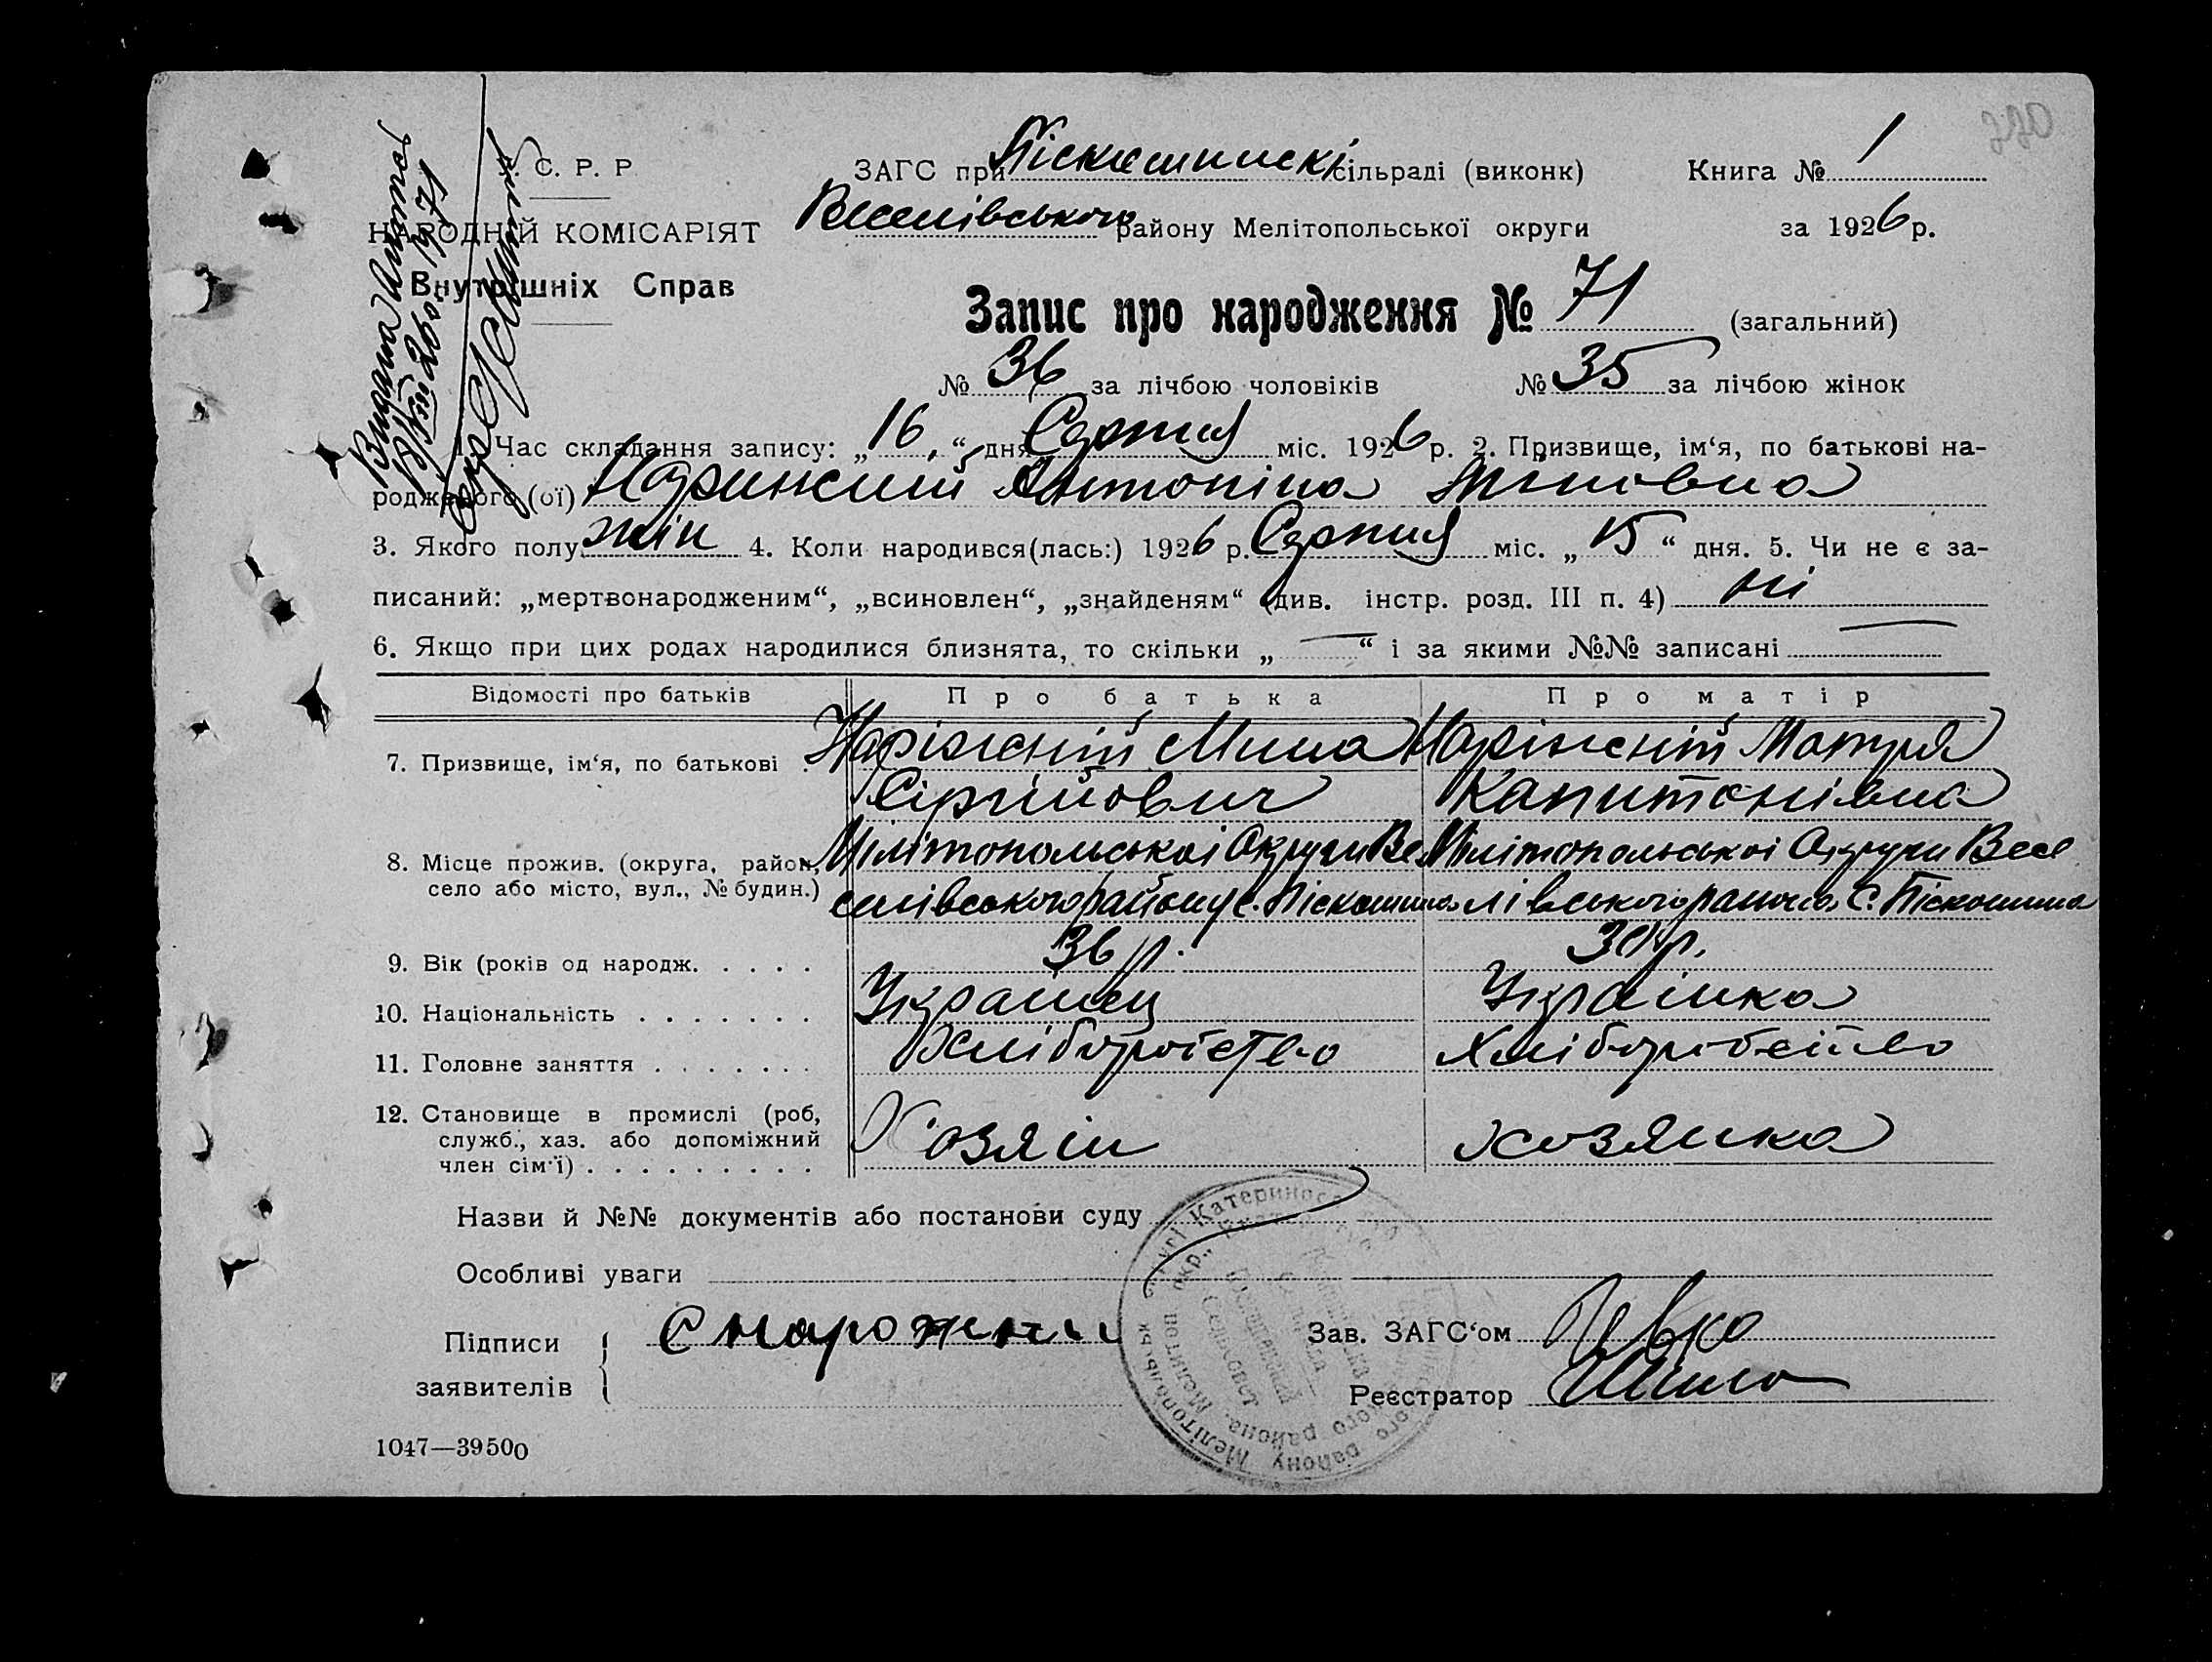 У. С. Р. Р
ЗАГС при Піскошинскі сільраді (виконк) Книга № 1
НАРОДНІЙ КОМІСАРІЯТ
Веселівського району Мелітопольської округи за 1926 р.
Внутрішніх Справ
Запис про народження № 71 (загальний)
№ 36 за лічбою чоловіків № 35 за лічбою жінок
1. Час складання запису: „16“ дня Серпня міс. 1926 р. 2. Призвище, ім‘я, по батькові на-
родженого (ої) Антоніна Міновна
3. Якого полу жін 4. Коли народився(лась:) 1926 р. Серпня міс. „15“ дня. 5. Чи не є за-
писаний: „мертвонародженим“, „всиновлен“, „знайденям“ (див. інстр. розд. III п. 4) ні
6. Якщо при цих родах народилися близнята, то скільки „ — “ і за якими №№ записані —
Відомості про батьків Про батька Про матір
7. Призвище, ім‘я, по батькові . Наріжній Мина Наріжній Мотря
Сіргійович Капитонівна
8. Місце прожив. (округа, район, Мілітопольскоі Округи Ве Мілітопольськоі Округи Весе
село або місто, вул., № будин.) селівського району с. Піскошина лівського с. Піскошина
9. Вік (років од народж. . . . . 36 р. 30 р.
10. Національність . . . . . . . Украінец Украінка
11. Головне заняття . . . . . . . Хліборобство Хліборобство
12. Становище в промислі (роб,
служб., хаз. або допоміжний Хозяін хозяика
член сім‘ї) . . . . . . . . .
Назви й №№ документів або постанови суду
Особливі уваги
Підписи
заявителів
Снарожни
Зав. ЗАГС‘ом
Реєстратор Шило
1047—39500